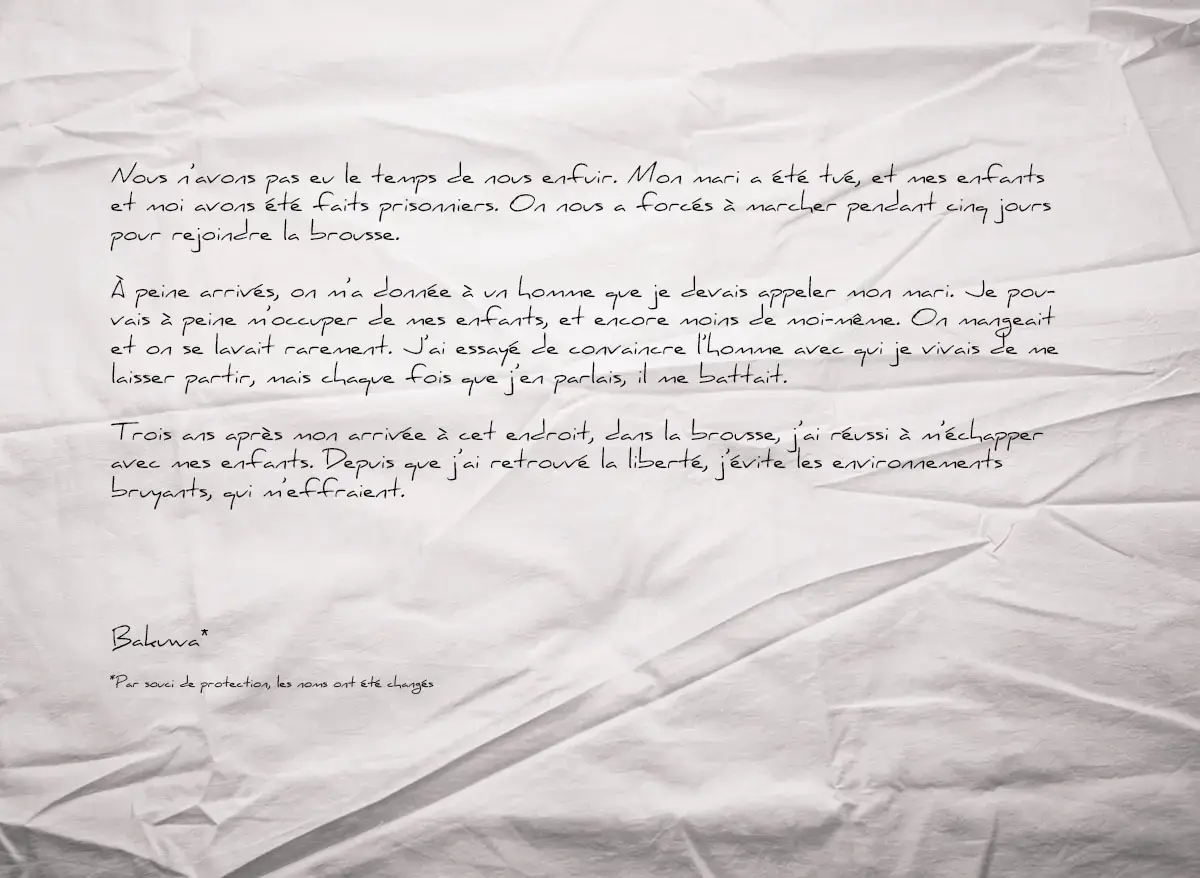 Nous n'avons pas eu le temps de nous enfuir. Mon mari a été tué, et mes enfants
et moi avons été faits prisonniers. On nous a forcés à marcher pendant cinq jours
pour rejoindre la brousse.
À peine arrivés, on m'a donnée à un homme que je devais appeler mon mari. Je pou-
vais à peine m'occuper de mes enfants, et encore moins de moi-même. On mangeait
et on se lavait rarement. J'ai essayé de convaincre l'homme avec qui je vivais de me
laisser partir, mais chaque fois que j'en parlais, il me battait.
Trois ans après mon arrivée à cet endroit, dans la brousse, j'ai réussi à m'échapper
avec mes enfants. Depuis que j'ai retrouvé la liberté, j'évite les environnements
bruyants, qui m'effraient.
Bakuwa*
*Par souci de protection, les noms ont été changés